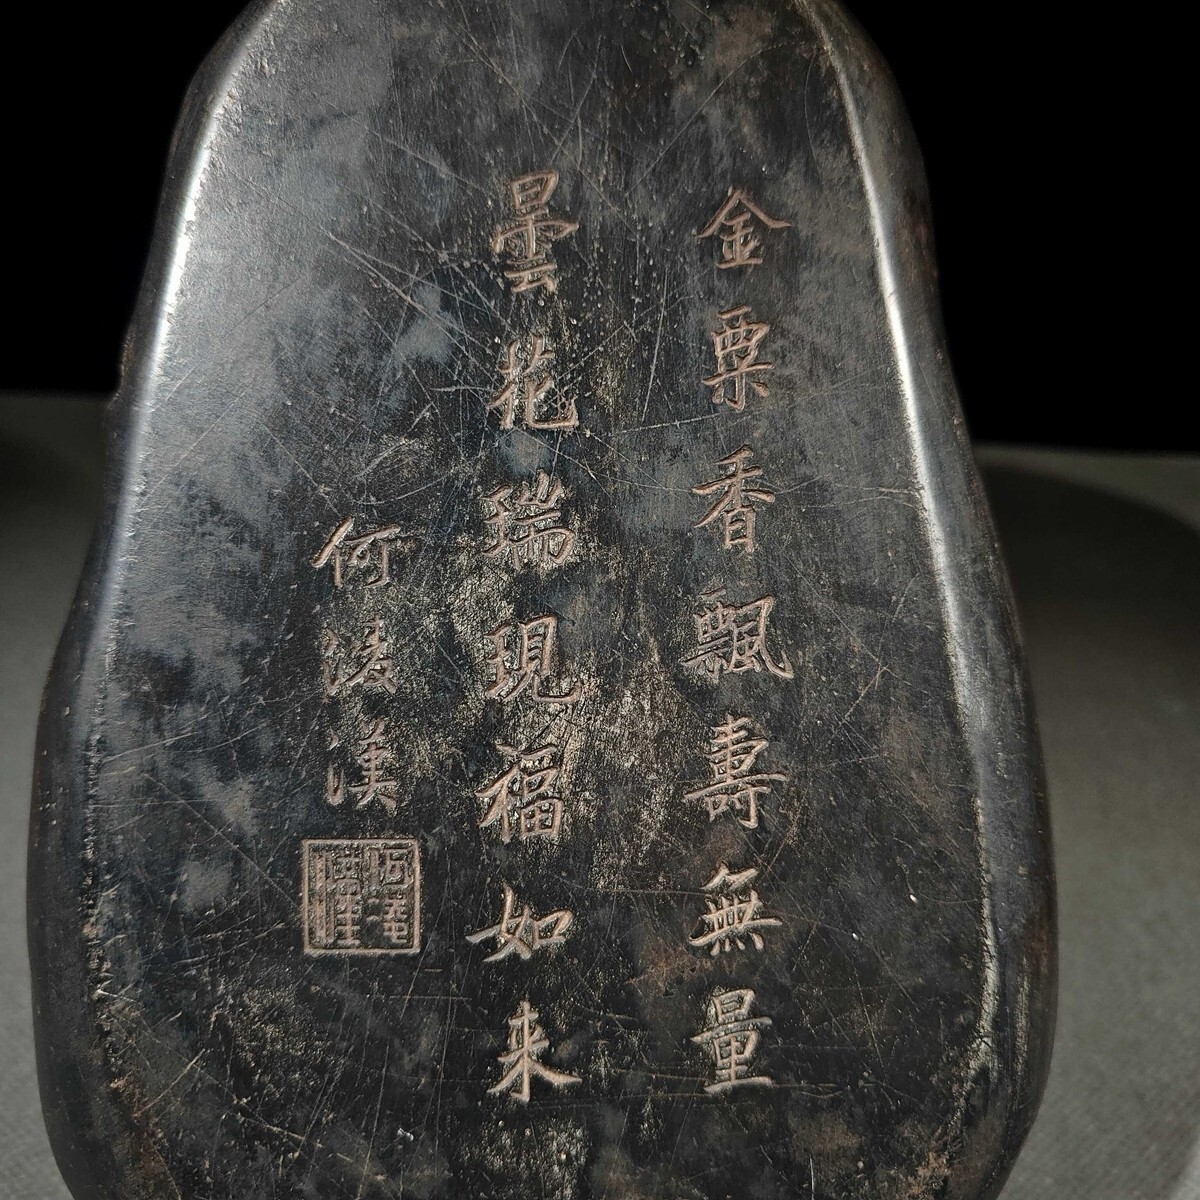 金粟香飄壽無量
曇花瑞現福如来
何凌漢